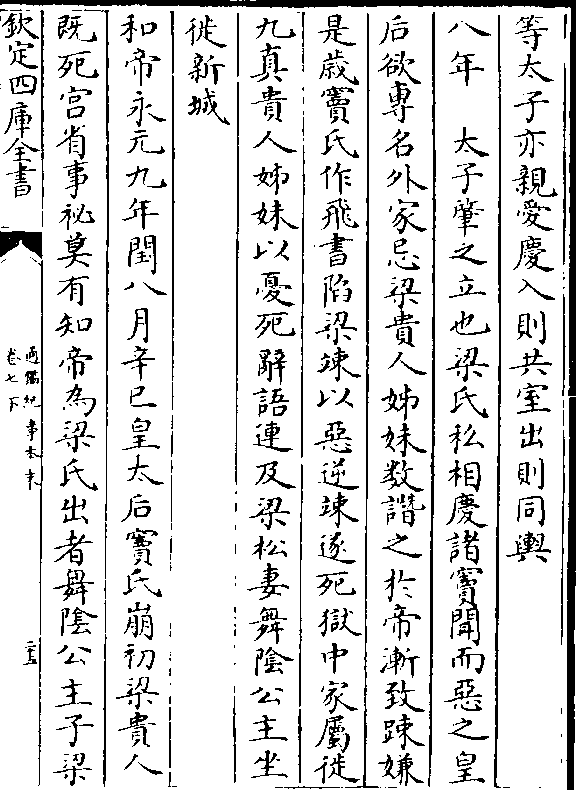 等太子亦親愛慶入則共室出則同輿
八年　太子肇之立也梁氏私相慶諸竇聞而惡之皇
后欲専名外家忌梁貴人姊妹数譖之於帝漸致踈嫌
是歳竇氏作飛書陷梁竦以惡逆竦遂死獄中家屬徙
九真貴人姊妹以憂死辭語連及梁松妻舞隂公主坐
徙新城
和帝永元九年閏八月辛巳皇太后竇氏崩初梁貴人
既死宫省事祕莫有知帝為梁氏出者舞隂公主子梁
欽定四庫全書
通鑑紀事本末
卷七下
二十五